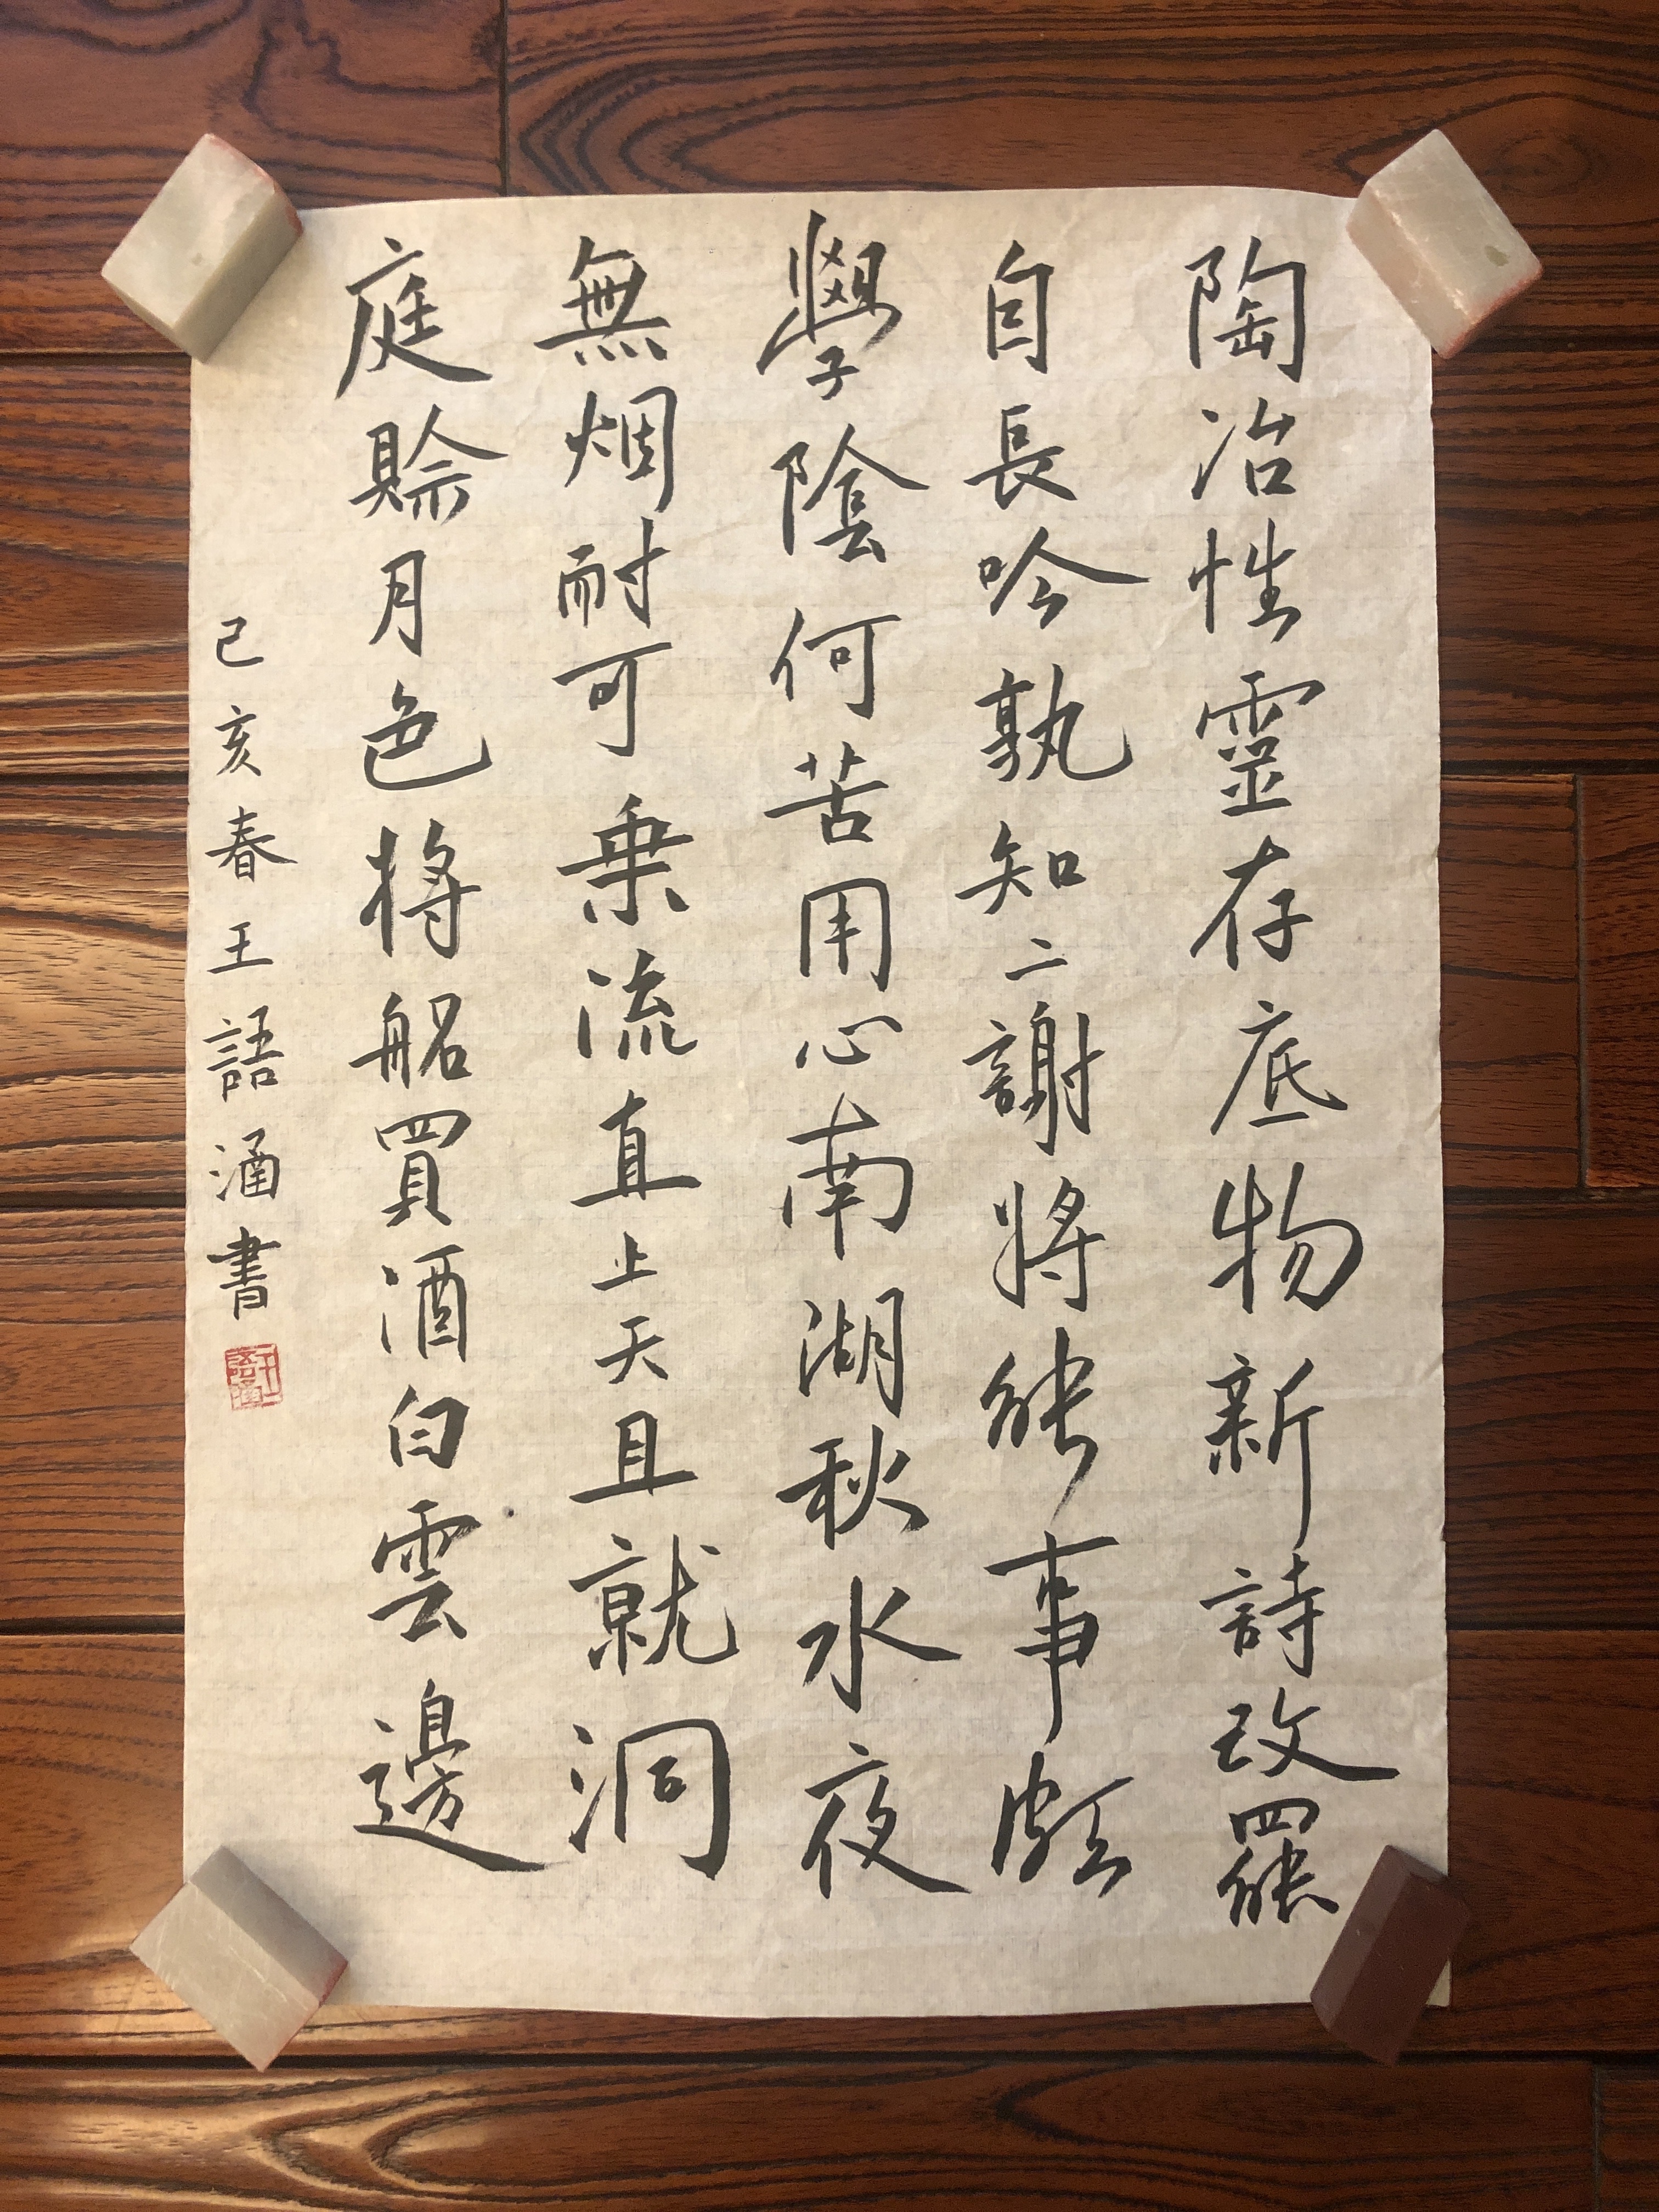 陶冶性靈存底物新詩改罷
自長吟孰知二謝將能事頗
學陰何苦用心南湖秋水夜
無烟耐可乗流直上天且就洞
庭賒月色將船買酒白雲邊
己亥春王語涵書
王語涵